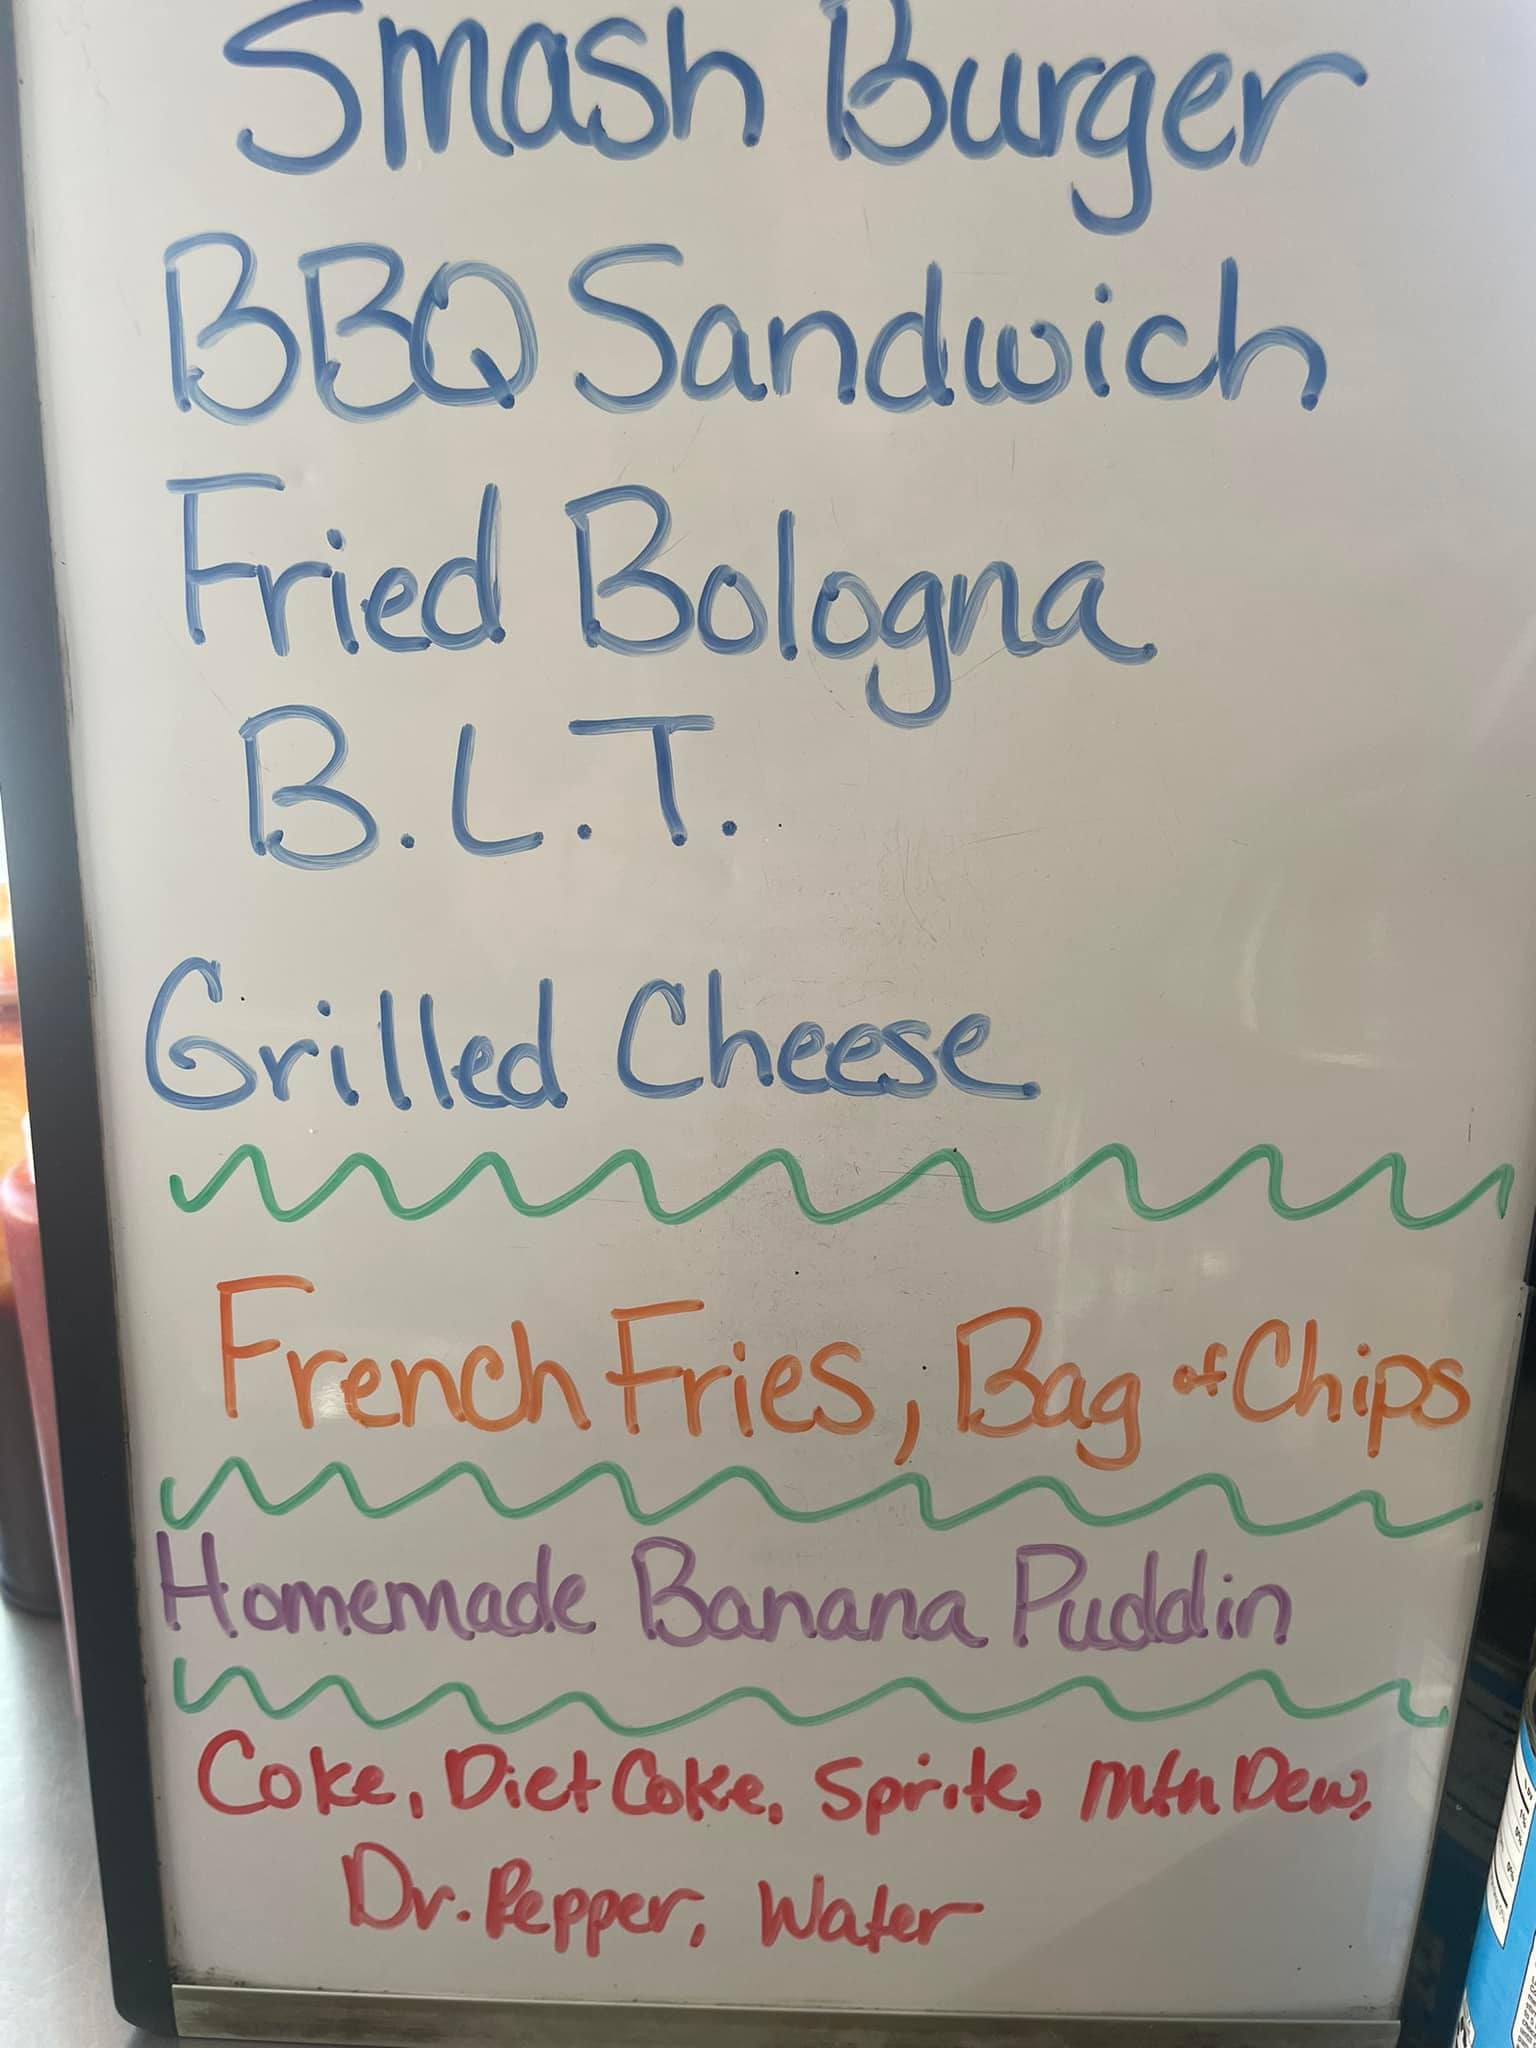 Smash Burger
BBQ Sandwich
Fried Bologna
B.L.T.
Grilled Cheese
French Fries, Bag of Chips
Homemade Banana Puddin
Coke, Diet Coke, Sprite, Mtn Dew,
Dr. Pepper, Water